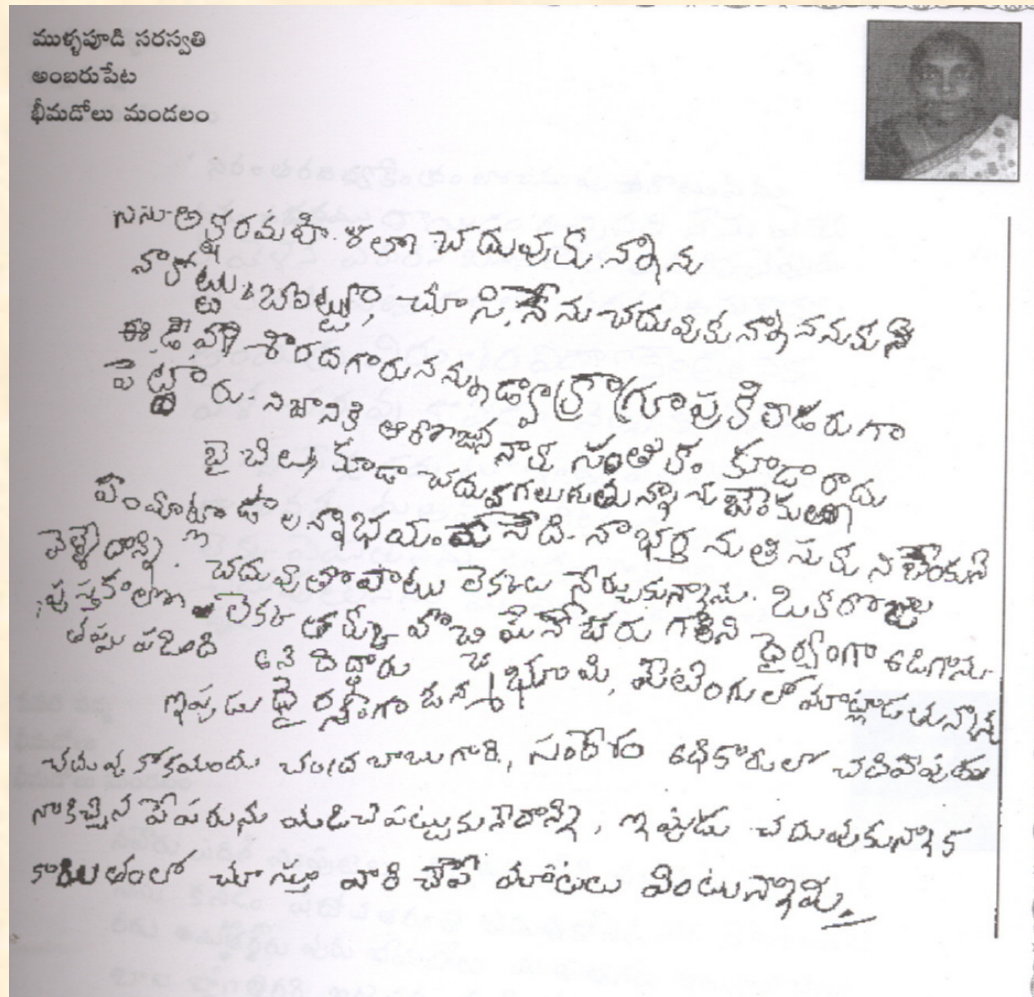 ముళ్ళపూడి సరస్వతి
అంబరుపేట
భీమడోలు మండలం
నేను అక్షరమహిళలా చదువుకున్నాను
నా కట్టు, బొట్టు, చూసి, నేను చదువుకున్నాననుకుని
ఈ డి వారి శారదగారు నన్ను డ్వాక్రా గ్రూపుకి లీడరుగా
పెట్టారు. నిజానికి ఆరోజున నాకు సంతకం కూడా రాదు
బైబిలు కూడా చదువగలుగుతున్నాను
మాట్లాడాలన్నా భయం వేసేది. నా భర్త
వెళ్ళేదాన్ని. చదువుతోపాటు లెక్కలు నేర్చుకున్నాను. ఒకరోజు
పుస్తకాలలో లెక్క తక్కువ వొచ్చి మేనేజరు గారిని ధైర్యంగా అడిగాను
తప్పు పడింది అని దిద్దారు
ఇప్పుడు ధైర్యంగా జన్మభూమి, మీటింగులో మాట్లాడతున్నాను
చదువుకోకముందు చంద్రబాబుగారి, సందేశం అధికారులో చదివేపుడు
నాకిచ్చిన పేపరును మడిచి పట్టుకునేదాన్ని, ఇపుడు చదువుకున్నాక
కాగితంలో చూస్తూ వారి చెపే మాటలు వింటున్నాము.